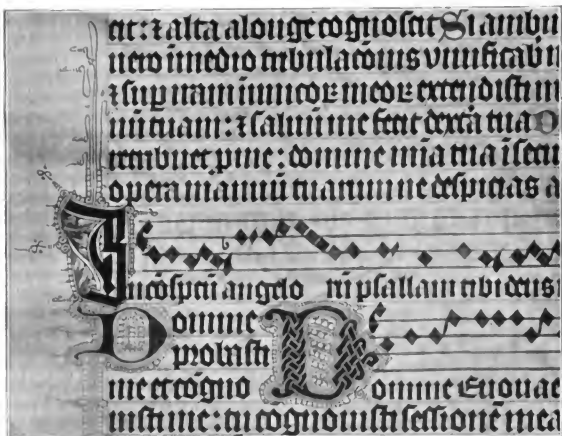 cit: ⁊ alta a longe cognoscit Si ambu
uero ī medio tribulacōnis viuificab
⁊ suꝑ iram inimicoꝝ meoꝝ extendisti m
nū tuam: ⁊ saluū me fecit dextͣa tua D
retribuet ꝓ me: domine mīa tua ī secu
opera manuū tuarum ne despicias a
In cōspcū angelo rū psallam tibi deus
Domine
probasti
me et cogno Domine Euouae
uisti me: tu cognouisti sessionē mea